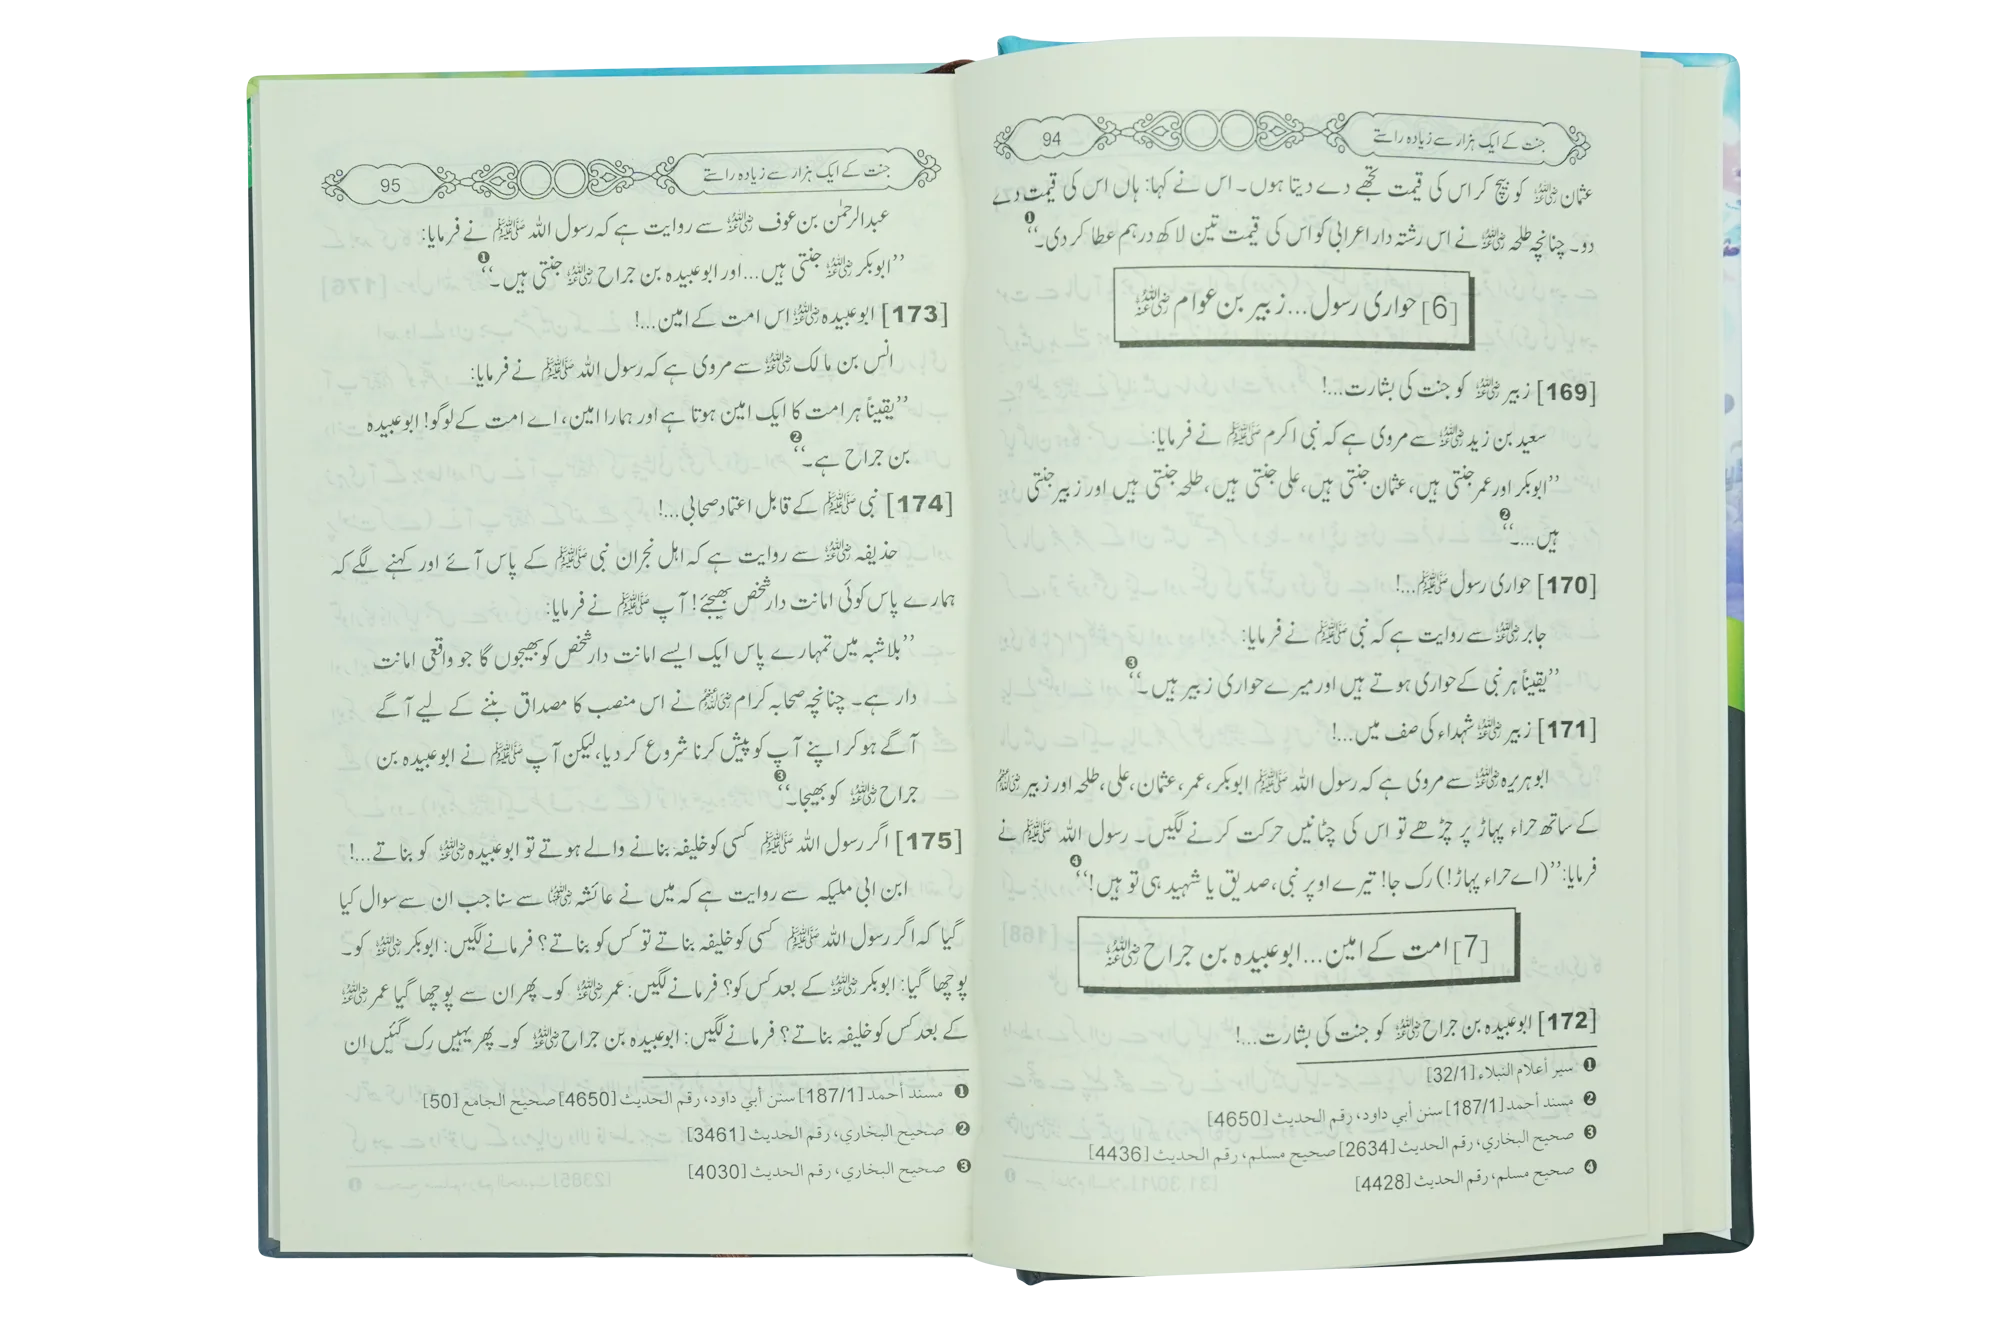 جنت کے ایک ہزار سے زیادہ راستے 94
عثمان رضی اللہ عنہ کو بیچ کر اس کی قیمت تجھے دے دیتا ہوں۔ اس نے کہا: ہاں اس کی قیمت دے
دو۔ چنانچہ طلحہ رضی اللہ عنہ نے اس رشتہ دار اعرابی کو اس کی قیمت تین لاکھ درہم عطا کر دی۔‘‘❶
[6] حواری رسول...زبیر بن عوام رضی اللہ عنہ
[169] زبیر رضی اللہ عنہ کو جنت کی بشارت...!
سعید بن زید رضی اللہ عنہ سے مروی ہے کہ نبی اکرم ﷺ نے فرمایا:
’’ابوبکر اور عمر جنتی ہیں، عثمان جنتی ہیں، علی جنتی ہیں، طلحہ جنتی ہیں اور زبیر جنتی
ہیں...۔‘‘❷
[170] حواری رسول ﷺ...!
جابر رضی اللہ عنہ سے روایت ہے کہ نبی ﷺ نے فرمایا:
’’یقیناً ہر نبی کے حواری ہوتے ہیں اور میرے حواری زبیر ہیں۔‘‘❸
[171] زبیر رضی اللہ عنہ شہداء کی صف میں...!
ابوہریرہ رضی اللہ عنہ سے مروی ہے کہ رسول اللہ ﷺ ابوبکر، عمر، عثمان، علی، طلحہ اور زبیر رضی اللہ عنہم
کے ساتھ حراء پہاڑ پر چڑھے تو اس کی چٹانیں حرکت کرنے لگیں۔ رسول اللہ ﷺ نے
فرمایا: ’’(اے حراء پہاڑ!) رک جا! تیرے اوپر نبی، صدیق یا شہید ہی تو ہیں!‘‘❹
[7] امت کے امین...ابوعبیدہ بن جراح رضی اللہ عنہ
[172] ابوعبیدہ بن جراح رضی اللہ عنہ کو جنت کی بشارت...!
❶ سير أعلام النبلاء [32/1]
❷ مسند أحمد [187/1] سنن أبي داود، رقم الحديث [4650]
❸ صحيح البخاري، رقم الحديث [2634] صحيح مسلم، رقم الحديث [4436]
❹ صحيح مسلم، رقم الحديث [4428]
جنت کے ایک ہزار سے زیادہ راستے 95
عبدالرحمٰن بن عوف رضی اللہ عنہ سے روایت ہے کہ رسول اللہ ﷺ نے فرمایا:
’’ابوبکر رضی اللہ عنہ جنتی ہیں...اور ابوعبیدہ بن جراح رضی اللہ عنہ جنتی ہیں۔‘‘❶
[173] ابوعبیدہ رضی اللہ عنہ اس امت کے امین...!
انس بن مالک رضی اللہ عنہ سے مروی ہے کہ رسول اللہ ﷺ نے فرمایا:
’’یقیناً ہر امت کا ایک امین ہوتا ہے اور ہمارا امین، اے امت کے لوگو! ابوعبیدہ
بن جراح ہے۔‘‘❷
[174] نبی ﷺ کے قابل اعتماد صحابی...!
حذیفہ رضی اللہ عنہ سے روایت ہے کہ اہل نجران نبی ﷺ کے پاس آئے اور کہنے لگے کہ
ہمارے پاس کوئی امانت دار شخص بھیجئے! آپ ﷺ نے فرمایا:
’’بلاشبہ میں تمہارے پاس ایک ایسے امانت دار شخص کو بھیجوں گا جو واقعی امانت
دار ہے۔ چنانچہ صحابہ کرام رضی اللہ عنہم نے اس منصب کا مصداق بننے کے لیے آگے
آگے ہو کر اپنے آپ کو پیش کرنا شروع کر دیا، لیکن آپ ﷺ نے ابوعبیدہ بن
جراح رضی اللہ عنہ کو بھیجا۔‘‘❸
[175] اگر رسول اللہ ﷺ کسی کو خلیفہ بنانے والے ہوتے تو ابوعبیدہ رضی اللہ عنہ کو بناتے...!
ابن ابی ملیکہ سے روایت ہے کہ میں نے عائشہ رضی اللہ عنہا سے سنا جب ان سے سوال کیا
گیا کہ اگر رسول اللہ ﷺ کسی کو خلیفہ بناتے تو کس کو بناتے؟ فرمانے لگیں: ابوبکر رضی اللہ عنہ کو۔
پوچھا گیا: ابوبکر رضی اللہ عنہ کے بعد کس کو؟ فرمانے لگیں: عمر رضی اللہ عنہ کو۔ پھر ان سے پوچھا گیا عمر رضی اللہ عنہ
کے بعد کس کو خلیفہ بناتے؟ فرمانے لگیں: ابوعبیدہ بن جراح رضی اللہ عنہ کو۔ پھر یہیں رک گئیں ان
❶ مسند أحمد [187/1] سنن أبي داود، رقم الحديث [4650] صحيح الجامع [50]
❷ صحيح البخاري، رقم الحديث [3461]
❸ صحيح البخاري، رقم الحديث [4030]